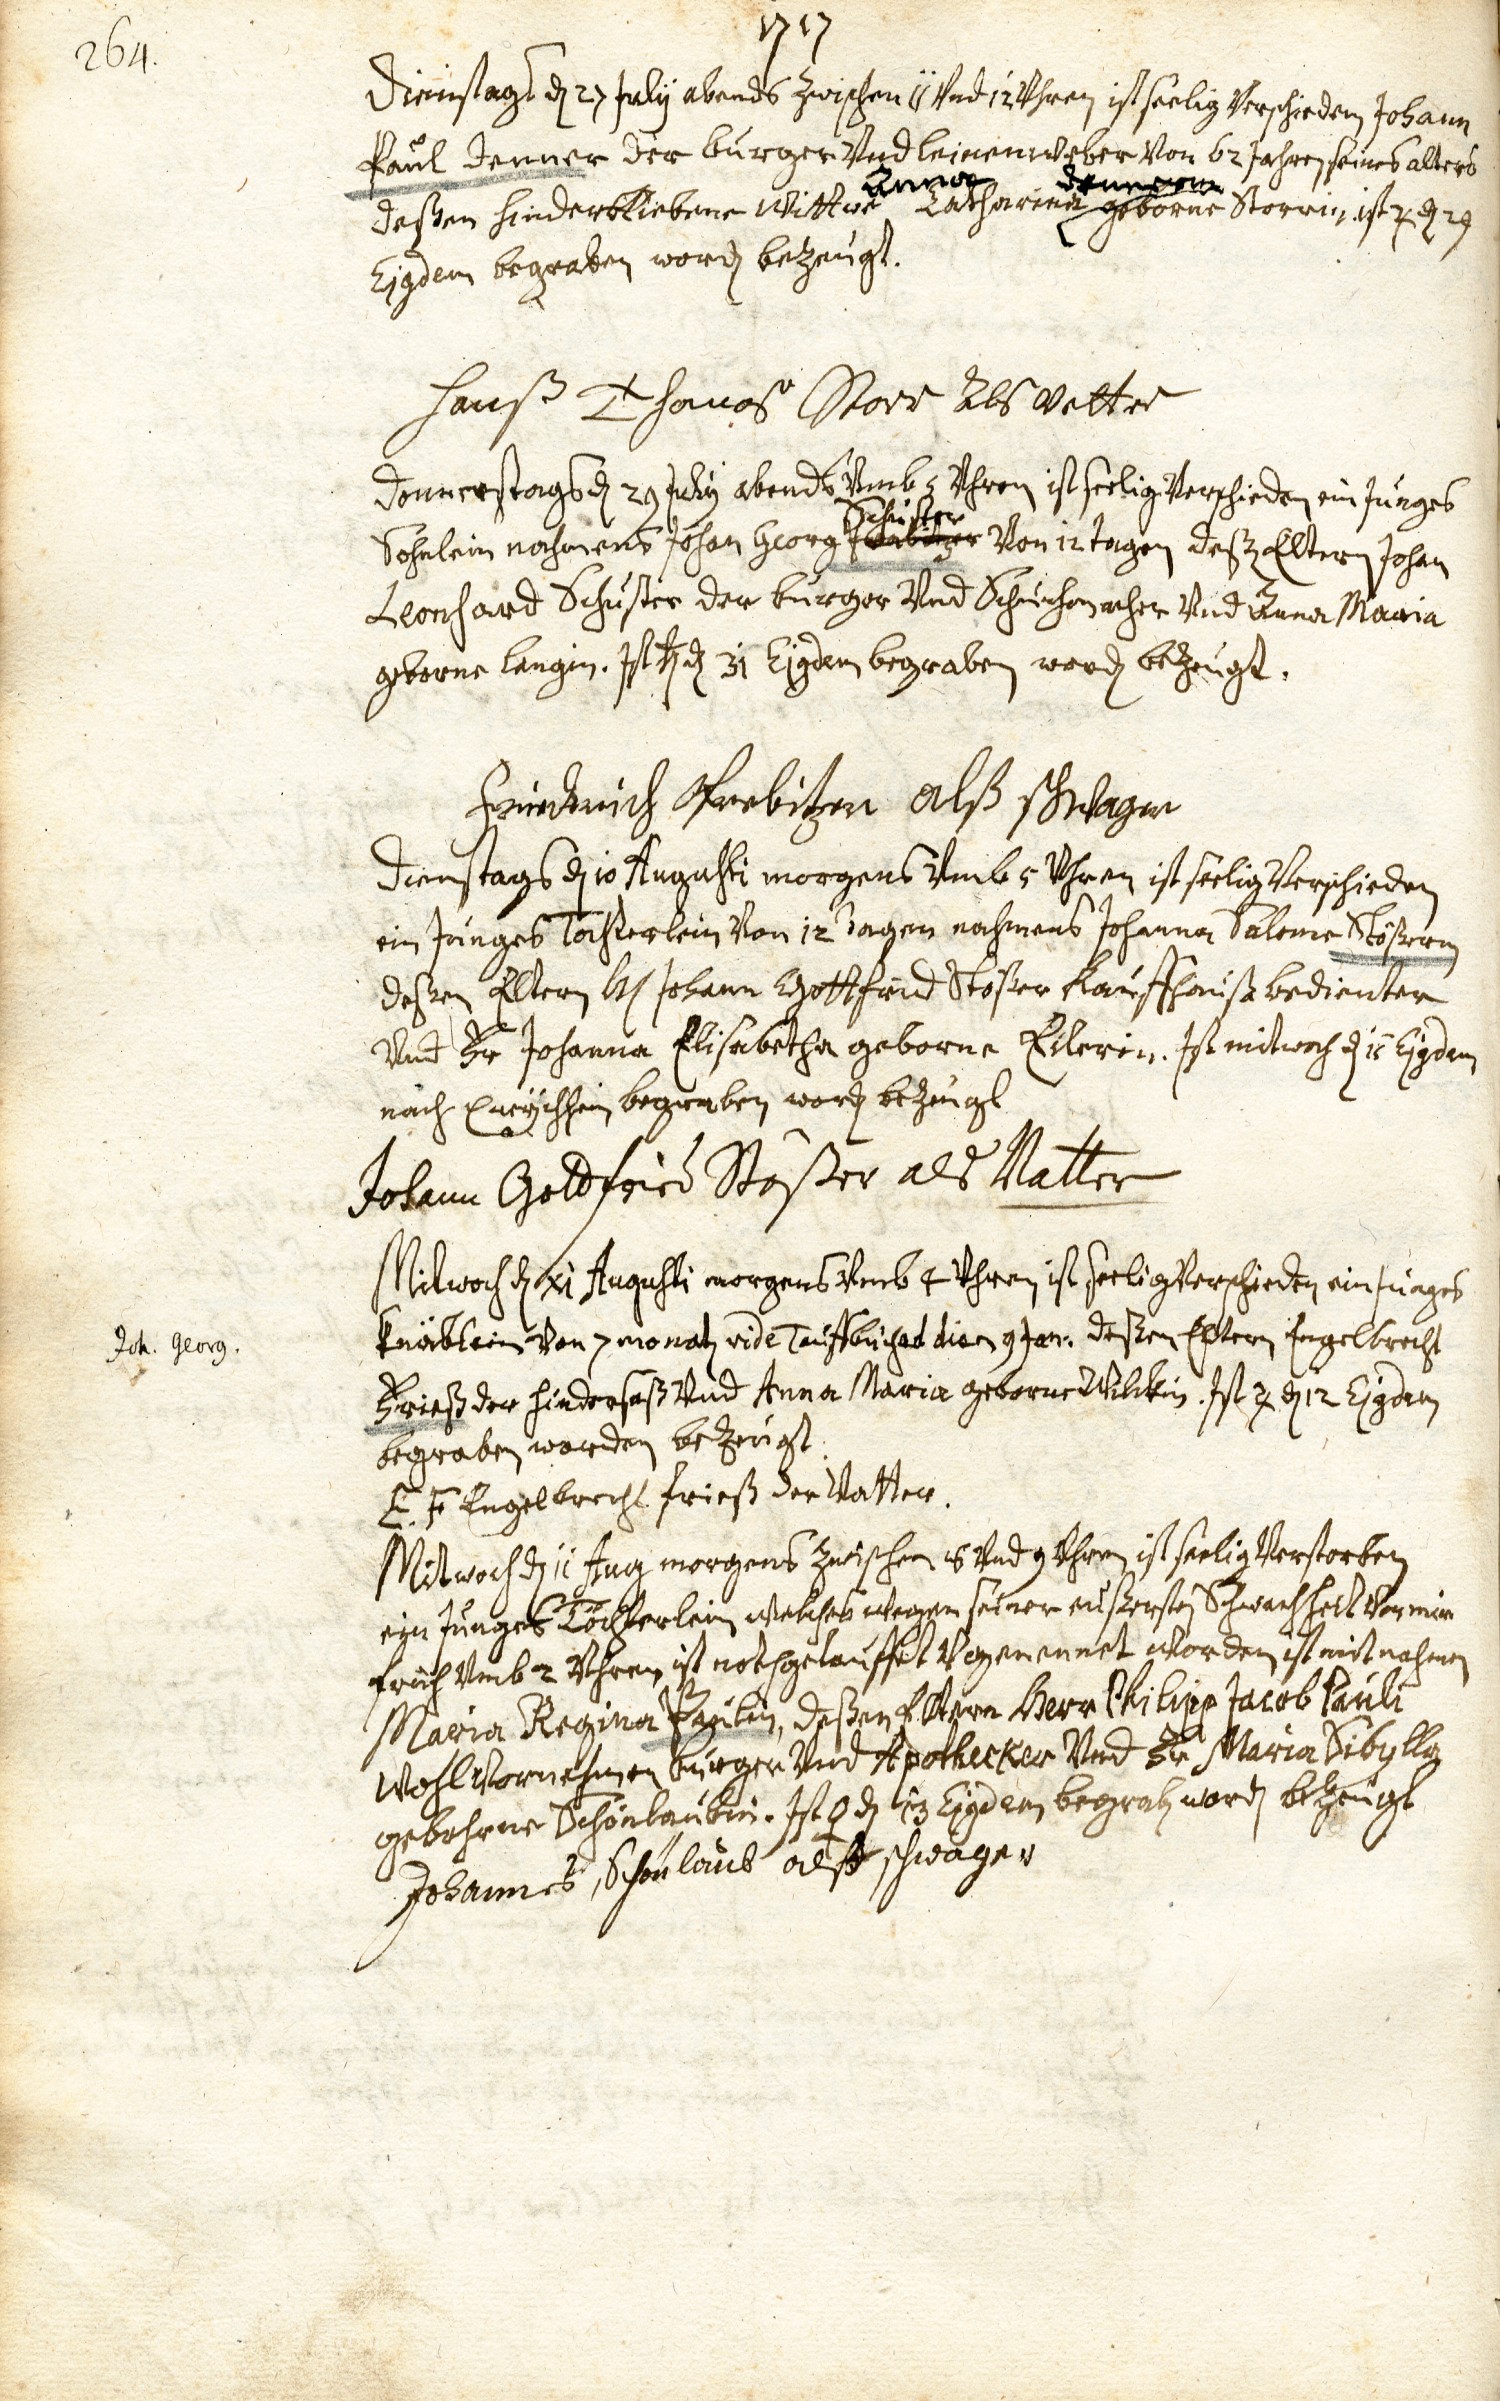 264.
1717
Dienstags d 27 July abends zwischen 11 Vnd 12 Vhren ist seelig Verschieden Johann
Paul Denner der burger Vnd leinenweber Von 62 Jahren seines alters
Anna
deßen hinderbliebene Wittwe Catharina geborne Storrin. ist ♃ d 29
Ejgdem begraben word bezeugt.
Hanß Thomas Storr Als Vetter
Donnerstags d 29 July abends Vmb 5 Vhren ist seelig Verschieden ein Junges
Schuster
Söhnlein nahmens Johan Georg Von 12 tagen deß Eltern Johan
Leonhard Schuster der burger Vnd Schuchmacher Vnd Anna Maria
geborne Langin. Ist ♄ d 31 Ejgdem begraben word bezeugt.
Friederich Prebitzer alß schwager
Dienstags d 10 Augusti morgens Vmb 5 Vhren ist seelig Verschieden
ein Junges Töchterlein Von 12 tagen nahmens Johanna Salome Stößerin
deßen Eltern H Johann Gottfried Stößer Kauffhauß bedienter
Vnd Fr Johanna Elisabetha geborne Eilerin. Ist mitwoch d 11 Ejgdem
nach begraben word bezeugt
Johann Gottfried Stößer als Vatter
Mitwoch d XI Augusti morgens Vmb 4 Vhren ist seelig Verschieden ein Junges
Joh. Georg.
Knäblein Von 7 monat vide Tauffbuch ad diem 9 Jan. deßen Eltern Engelbrecht
Frieß der hindersaß Vnd Anna Maria geborne Wilckin. Ist ♃ d 12 Ejgdem
begraben worden bezeugt.
E. F Engelbrecht frieß der Vatter.
Mitwoch d 11 Aug morgens zwischen 8 Vnd 9 Vhren ist seelig Verstorben
ein Junges Töchterlein welches wegen seiner eußersten Schwachheit Von mir
früh Vmb 2 Vhren ist nothgetauffet V genennet worden ist mit nahmen
Maria Regina Paulin, deßen Eltern Herr Philipp Jacob Pauli
Wohl Vornehmen burger Vnd Apothecker Vnd Fr Maria Sibylla
gebohrne Schönlaubin. Ist ♀ d 13 Ejgdem begrab word bezeugt
Johannes Schönlaub alß schwager